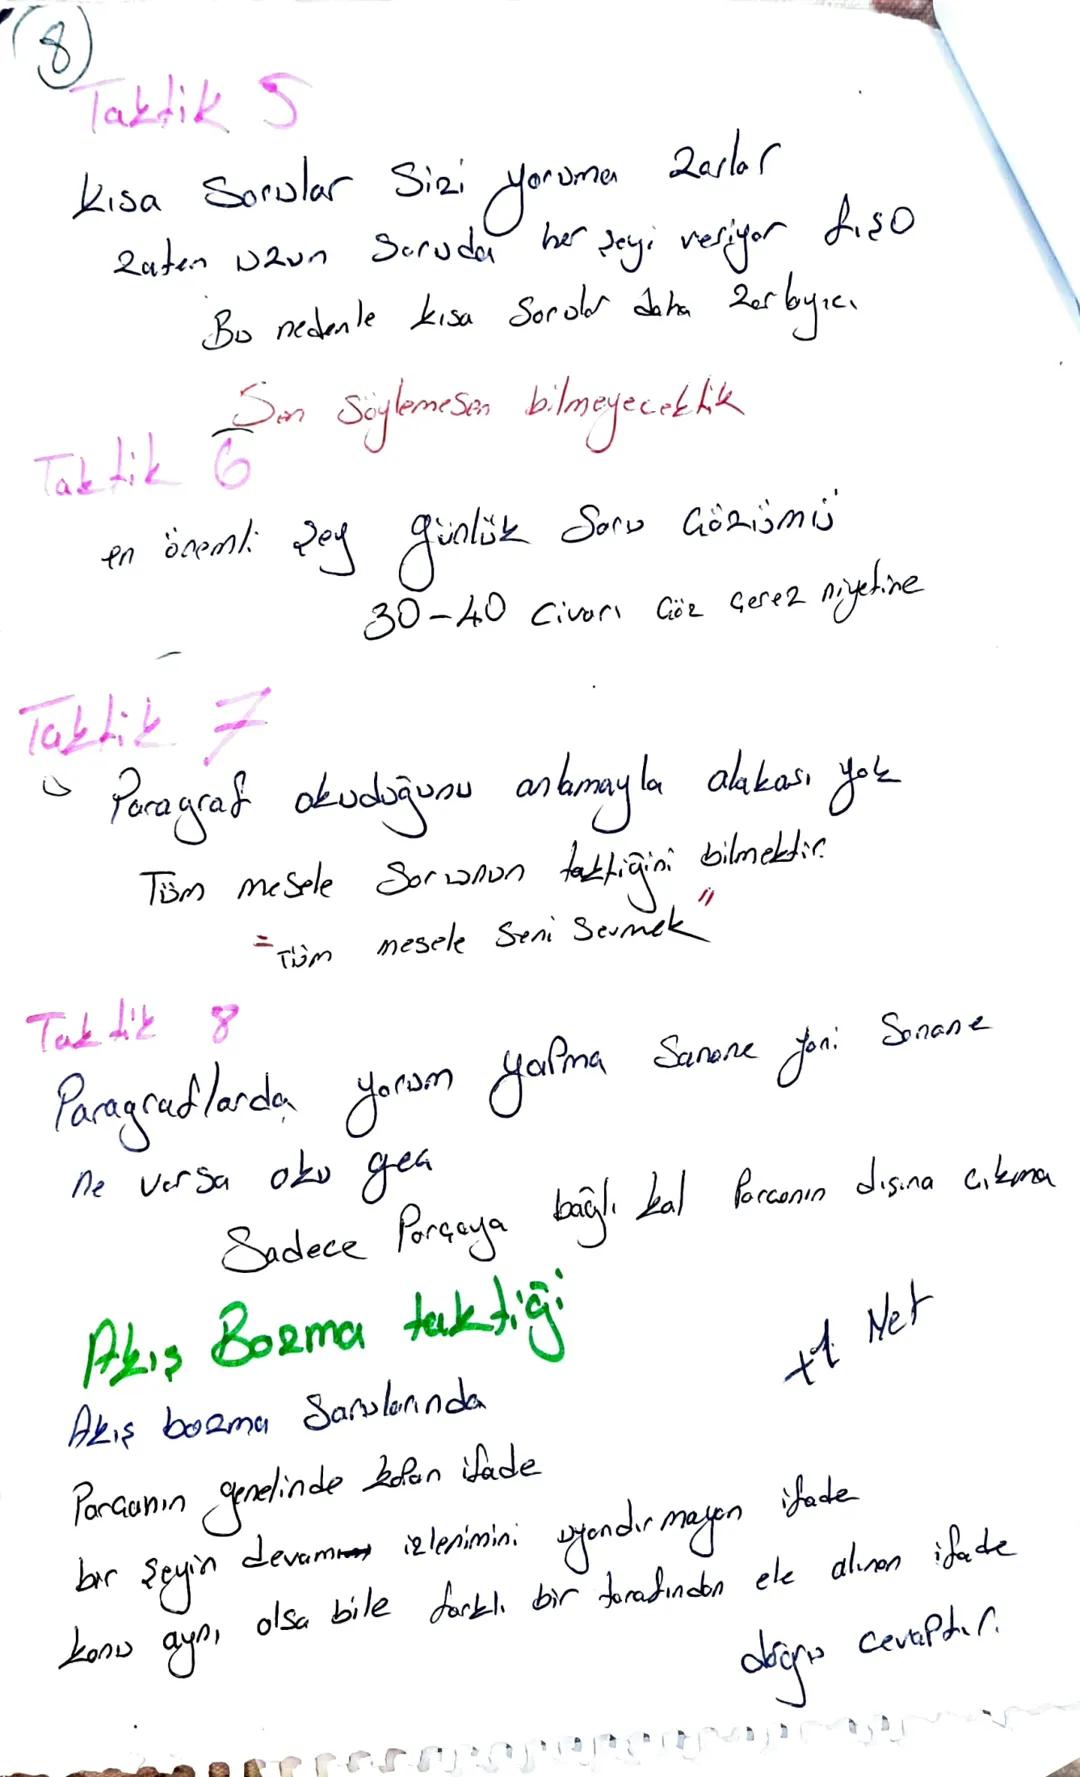 8
Taktik 5
Kısa Sorular Sizi yoruma zorlar
zaten uzun Soruda her şeyi veriyor fışo
Bu nedenle kısa Sorular daha zorlayıcı
Sen Söylemesen bilmeyecektik
Taktik 6
en önemli şey günlük Soru Çözümü
30-40 Civarı Çöz Çerez niyetine
Taktik 7
Paragraf okuduğunu anlamayla alakası yok
Tüm mesele Sorunun taktiğini bilmektir.
"Tüm mesele Seni Sevmek"
Taktik 8
Paragraflarda yorum yapma Sanane yani Sanane
ne varsa oku geç
Sadece Parçaya bağlı kal Parçanın dışına çıkma
Akış Bozma taktiği
+1 Net
Akış bozma Sorularında
Parçanın genelinde kopan ifade
bir şeyin devamı izlenimini uyandırmayan ifade
konu aynı olsa bile farklı bir tarafından ele alınan ifade
doğru cevaptır.